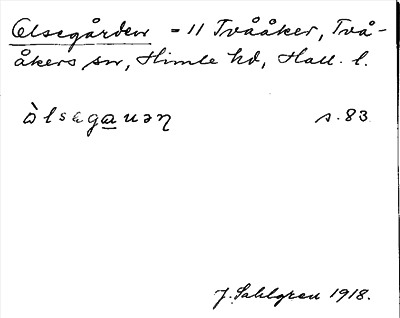 Olsegården = 11 Tvååker, Två-
åkers sn, Himle hd, Hall. l.
òlsegauəɳ s. 83
J. Sahlgren 1918.